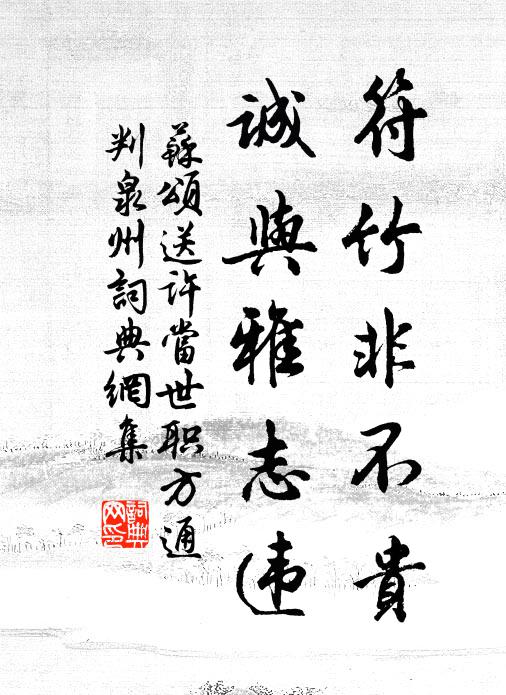 符竹非不貴
誠與雅志违
蘇頌送许當世职方通
判泉州詞典網集
詞典网印